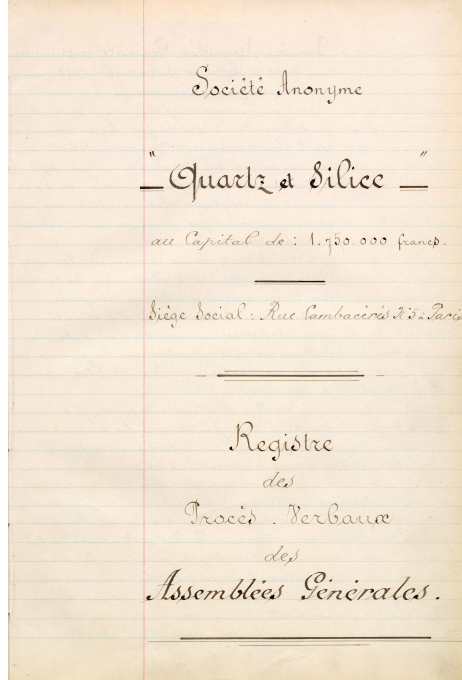 Société Anonyme
" Quartz et Silice "
au Capital de : 1.750.000 francs.
Siège Social : Rue Cambacérès N°5 à Paris
Registre
des
Procès. Verbaux
des
Assemblées Générales.